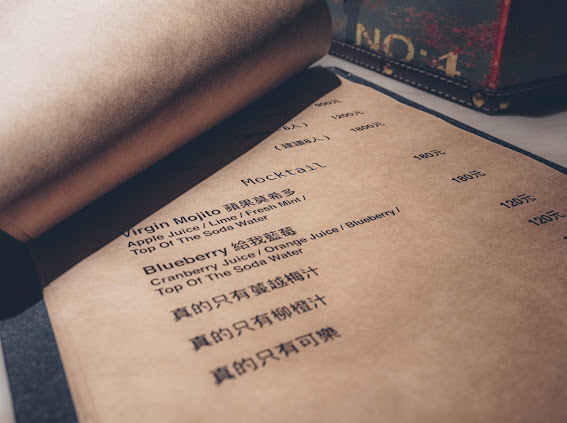 NO:4
900元
6人） 1200元
（建議8人） 1800元
Mocktail
Virgin Mojito 蘋果莫希多 180元
Apple Juice / Lime / Fresh Mint /
Top Of The Soda Water
Blueberry 給我藍莓 180元
Cranberry Juice / Orange Juice / Blueberry /
Top Of The Soda Water
真的只有蔓越梅汁 120元
真的只有柳橙汁 120元
真的只有可樂